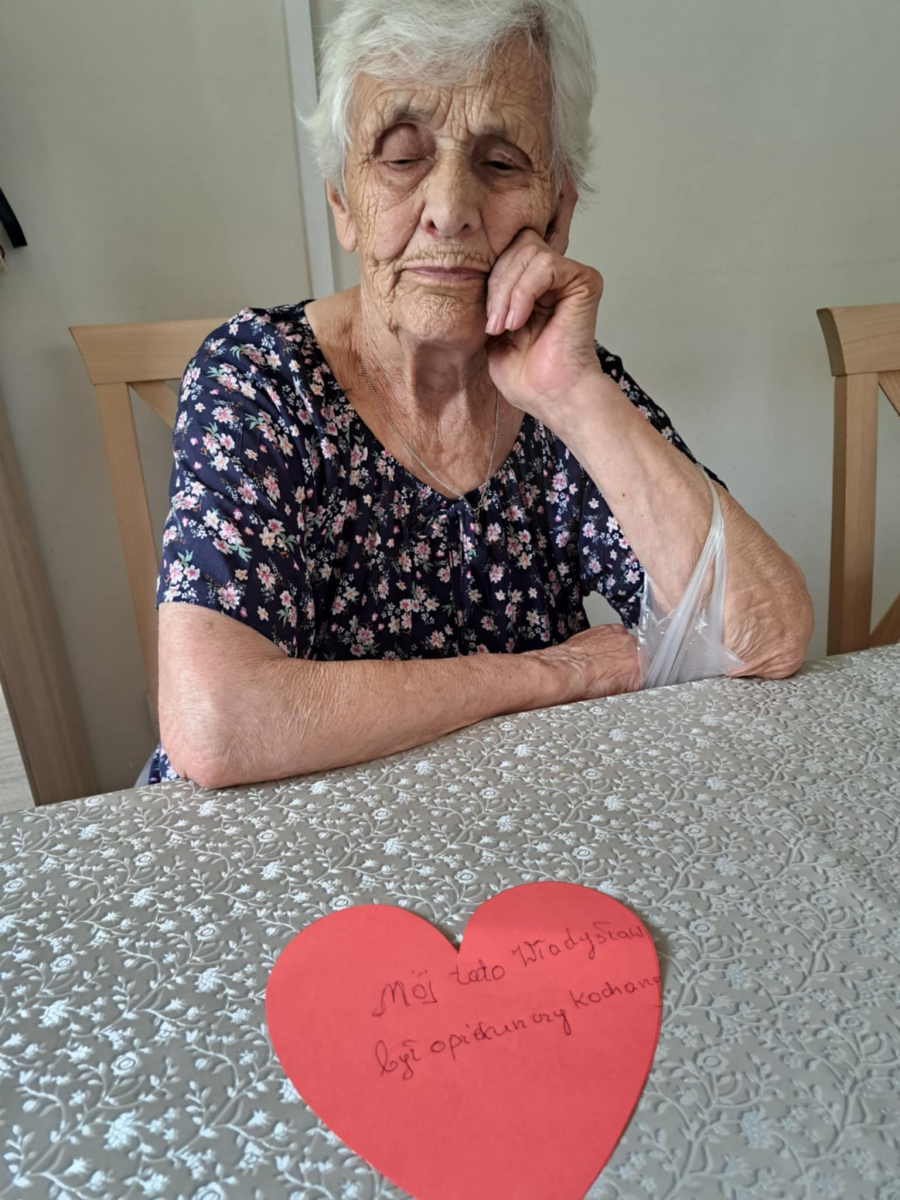 Mój tato Władysław
był opiekunczy kochany